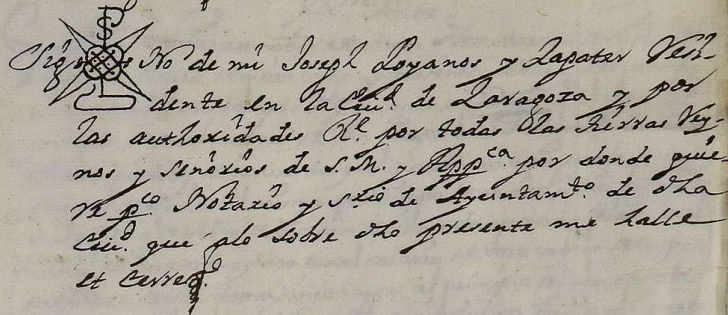 Sig no de mi Joseph Loyanos y Zapater Resi-
dente en la Ciud de Zaragoza y por
las authoridades Rs por todas las tierras Rey-
nos y señorios de S. M. y Appca por donde quie
re pco Notario y Srio de Ayuntamto de dha
Ciud que alo sobre dho presente me halle
et cerré